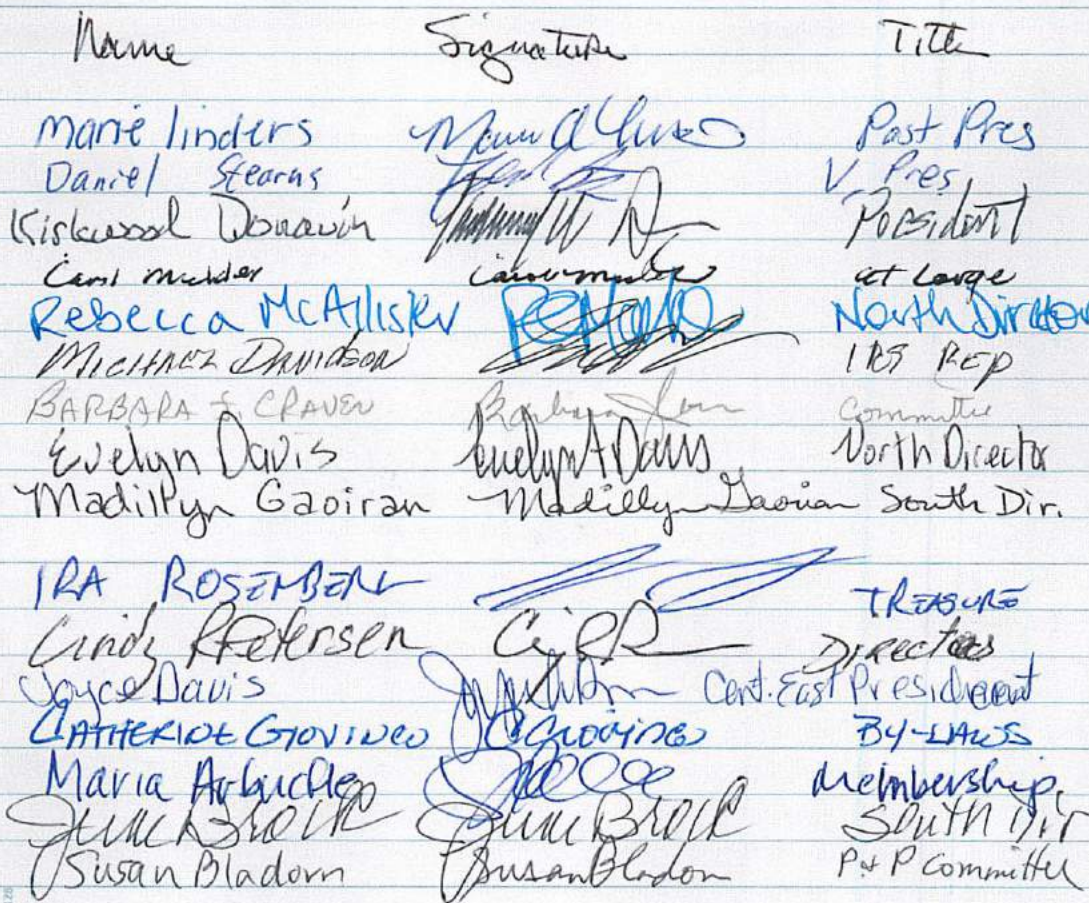 Name Signature Title
Marie Linders Past Pres
Daniel Stearns V. Pres
Kirkwood Donavin President
Carol Mulder Carol Mulder at Large
Rebecca McAllister North Director
MICHAEL DAVIDSON IRS REP
BARBARA J. CRAVEN Barbara Committee
Evelyn Davis Evelyn A Davis North Director
Madillyn Gaoiran Madillyn Gaoiran South Dir.
IRA ROSENBERG TREASURE
Cindy R Petersen Directors
Joyce Davis Cent. East President
CATHERINE GIOVINCO C Giovinco BY-LAWS
Maria Arbuckle Membership
June Brock June Brock South Dir
Susan Bladorn Susan Bladorn P & P Committee